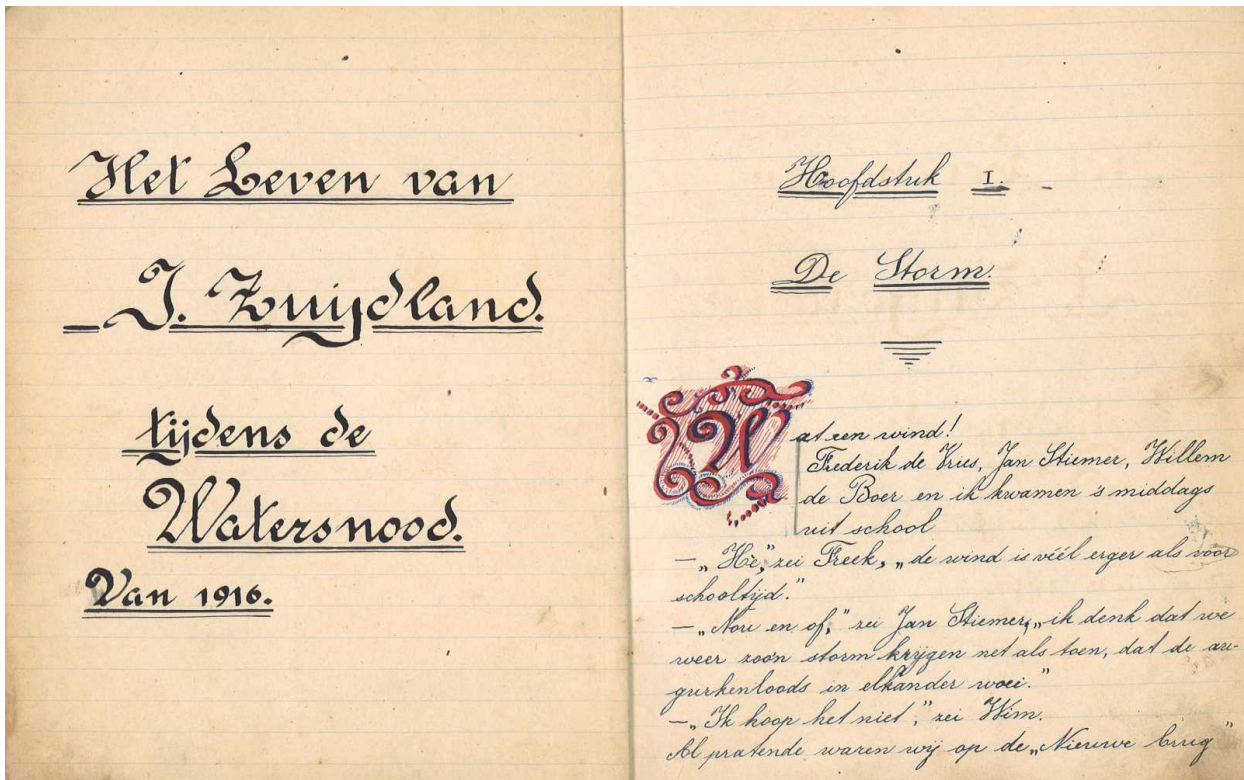 Het Leven van
J. Zuijdland.
tijdens de
Watersnood.
Van 1916.
Hoofdstuk I.
De Storm.
Wat een wind!
Frederik de Vries, Jan Stiemer, Willem
de Boer en ik kwamen 's middags
uit school
—„Hè," zei Freek, „de wind is véél erger als voor
schooltijd."
—„Nou en of," zei Jan Stiemer, „ik denk dat we
weer zoo'n storm krijgen net als toen, dat de au-
gurkenloods in elkander woei."
—„Ik hoop het niet", zei Wim.
Al pratende waren wij op de „Nieuwe brug"